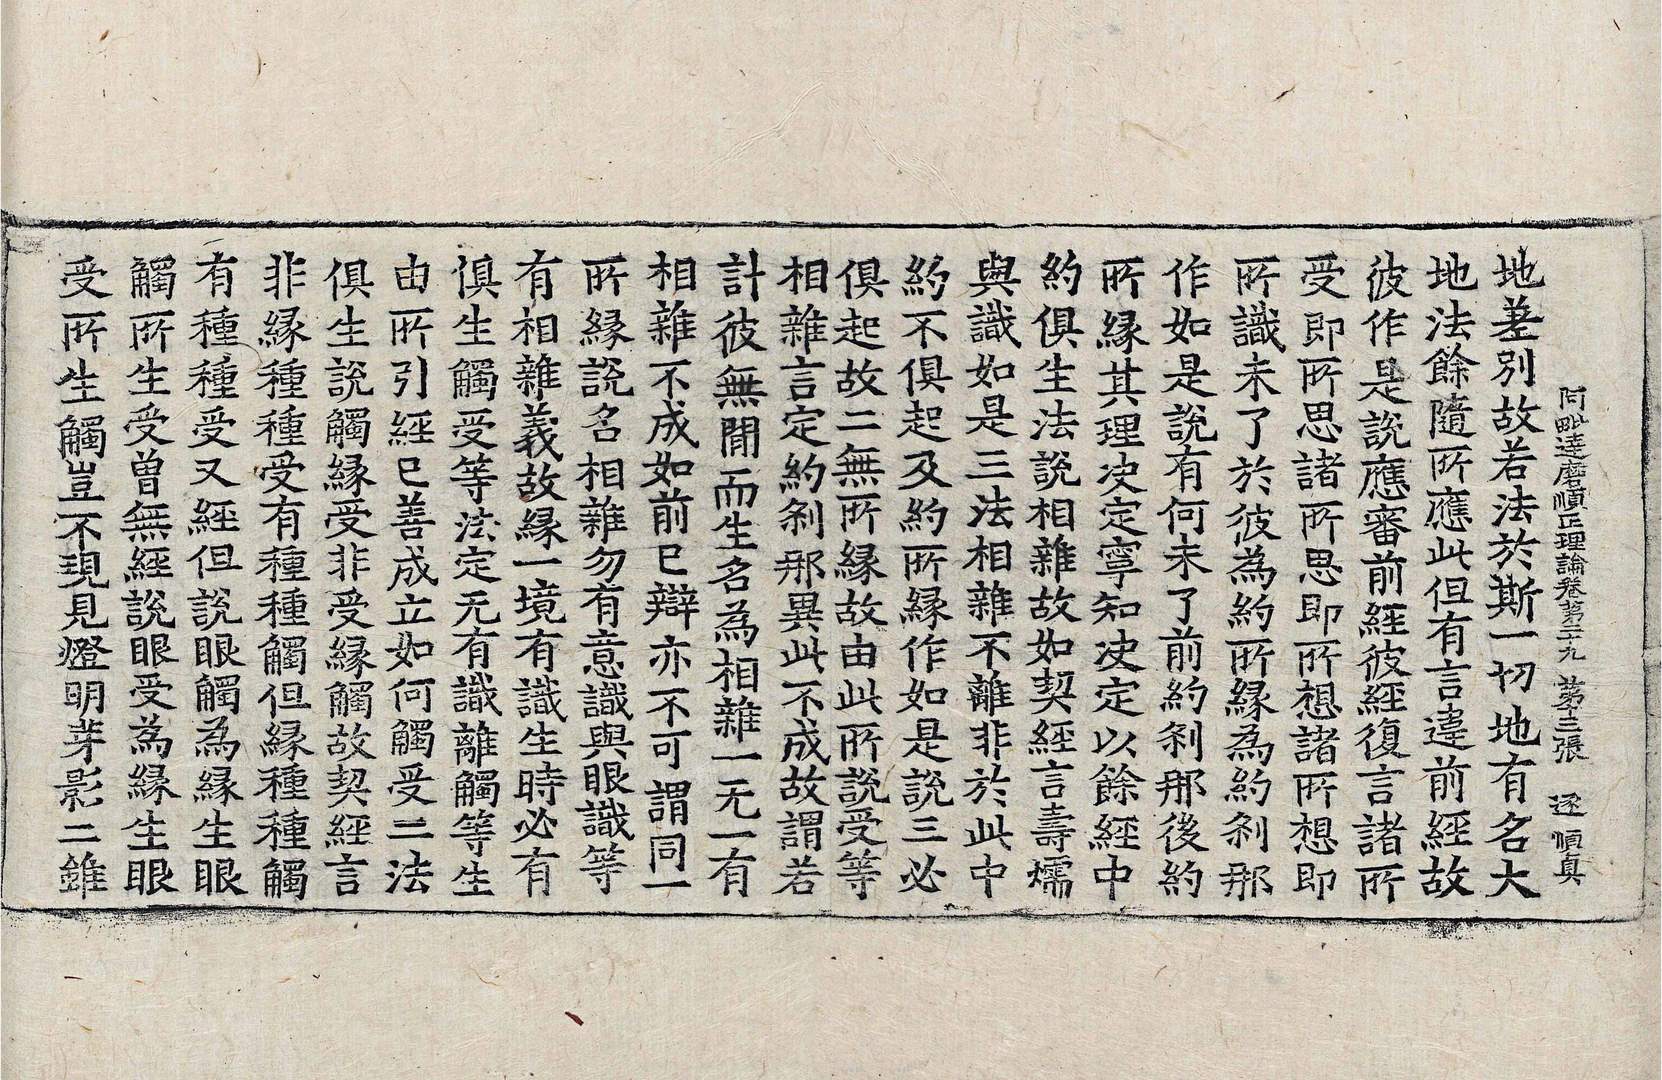 阿毗達磨順正理論卷第二十九 第三張 逐 順真
地差別故若法於斯一切地有名大
地法餘隨所應此但有言違前經故
彼作是說應審前經彼經復言諸所
受即所思諸所思即所想諸所想即
所識未了於彼為約所緣為約剎那
作如是說有何未了前約剎那後約
所緣其理决定寧知决定以餘經中
約俱生法說相雜故如契經言壽煗
與識如是三法相雜不離非於此中
約不俱起及約所緣作如是說三必
俱起故二無所緣故由此所說受等
相雜言定約剎那異此不成故謂若
計彼無間而生名為相雜一无一有
相雜不成如前已辯亦不可謂同一
所緣說名相雜勿有意識與眼識等
有相雜義故緣一境有識生時必有
俱生觸受等法定无有識離觸等生
由所引經已善成立如何觸受二法
俱生說觸緣受非受緣觸故契經言
非緣種種受有種種觸但緣種種觸
有種種受又經但說眼觸為緣生眼
觸所生受曾無經說眼受為緣生眼
受所生觸豈不現見燈明芽影二雖